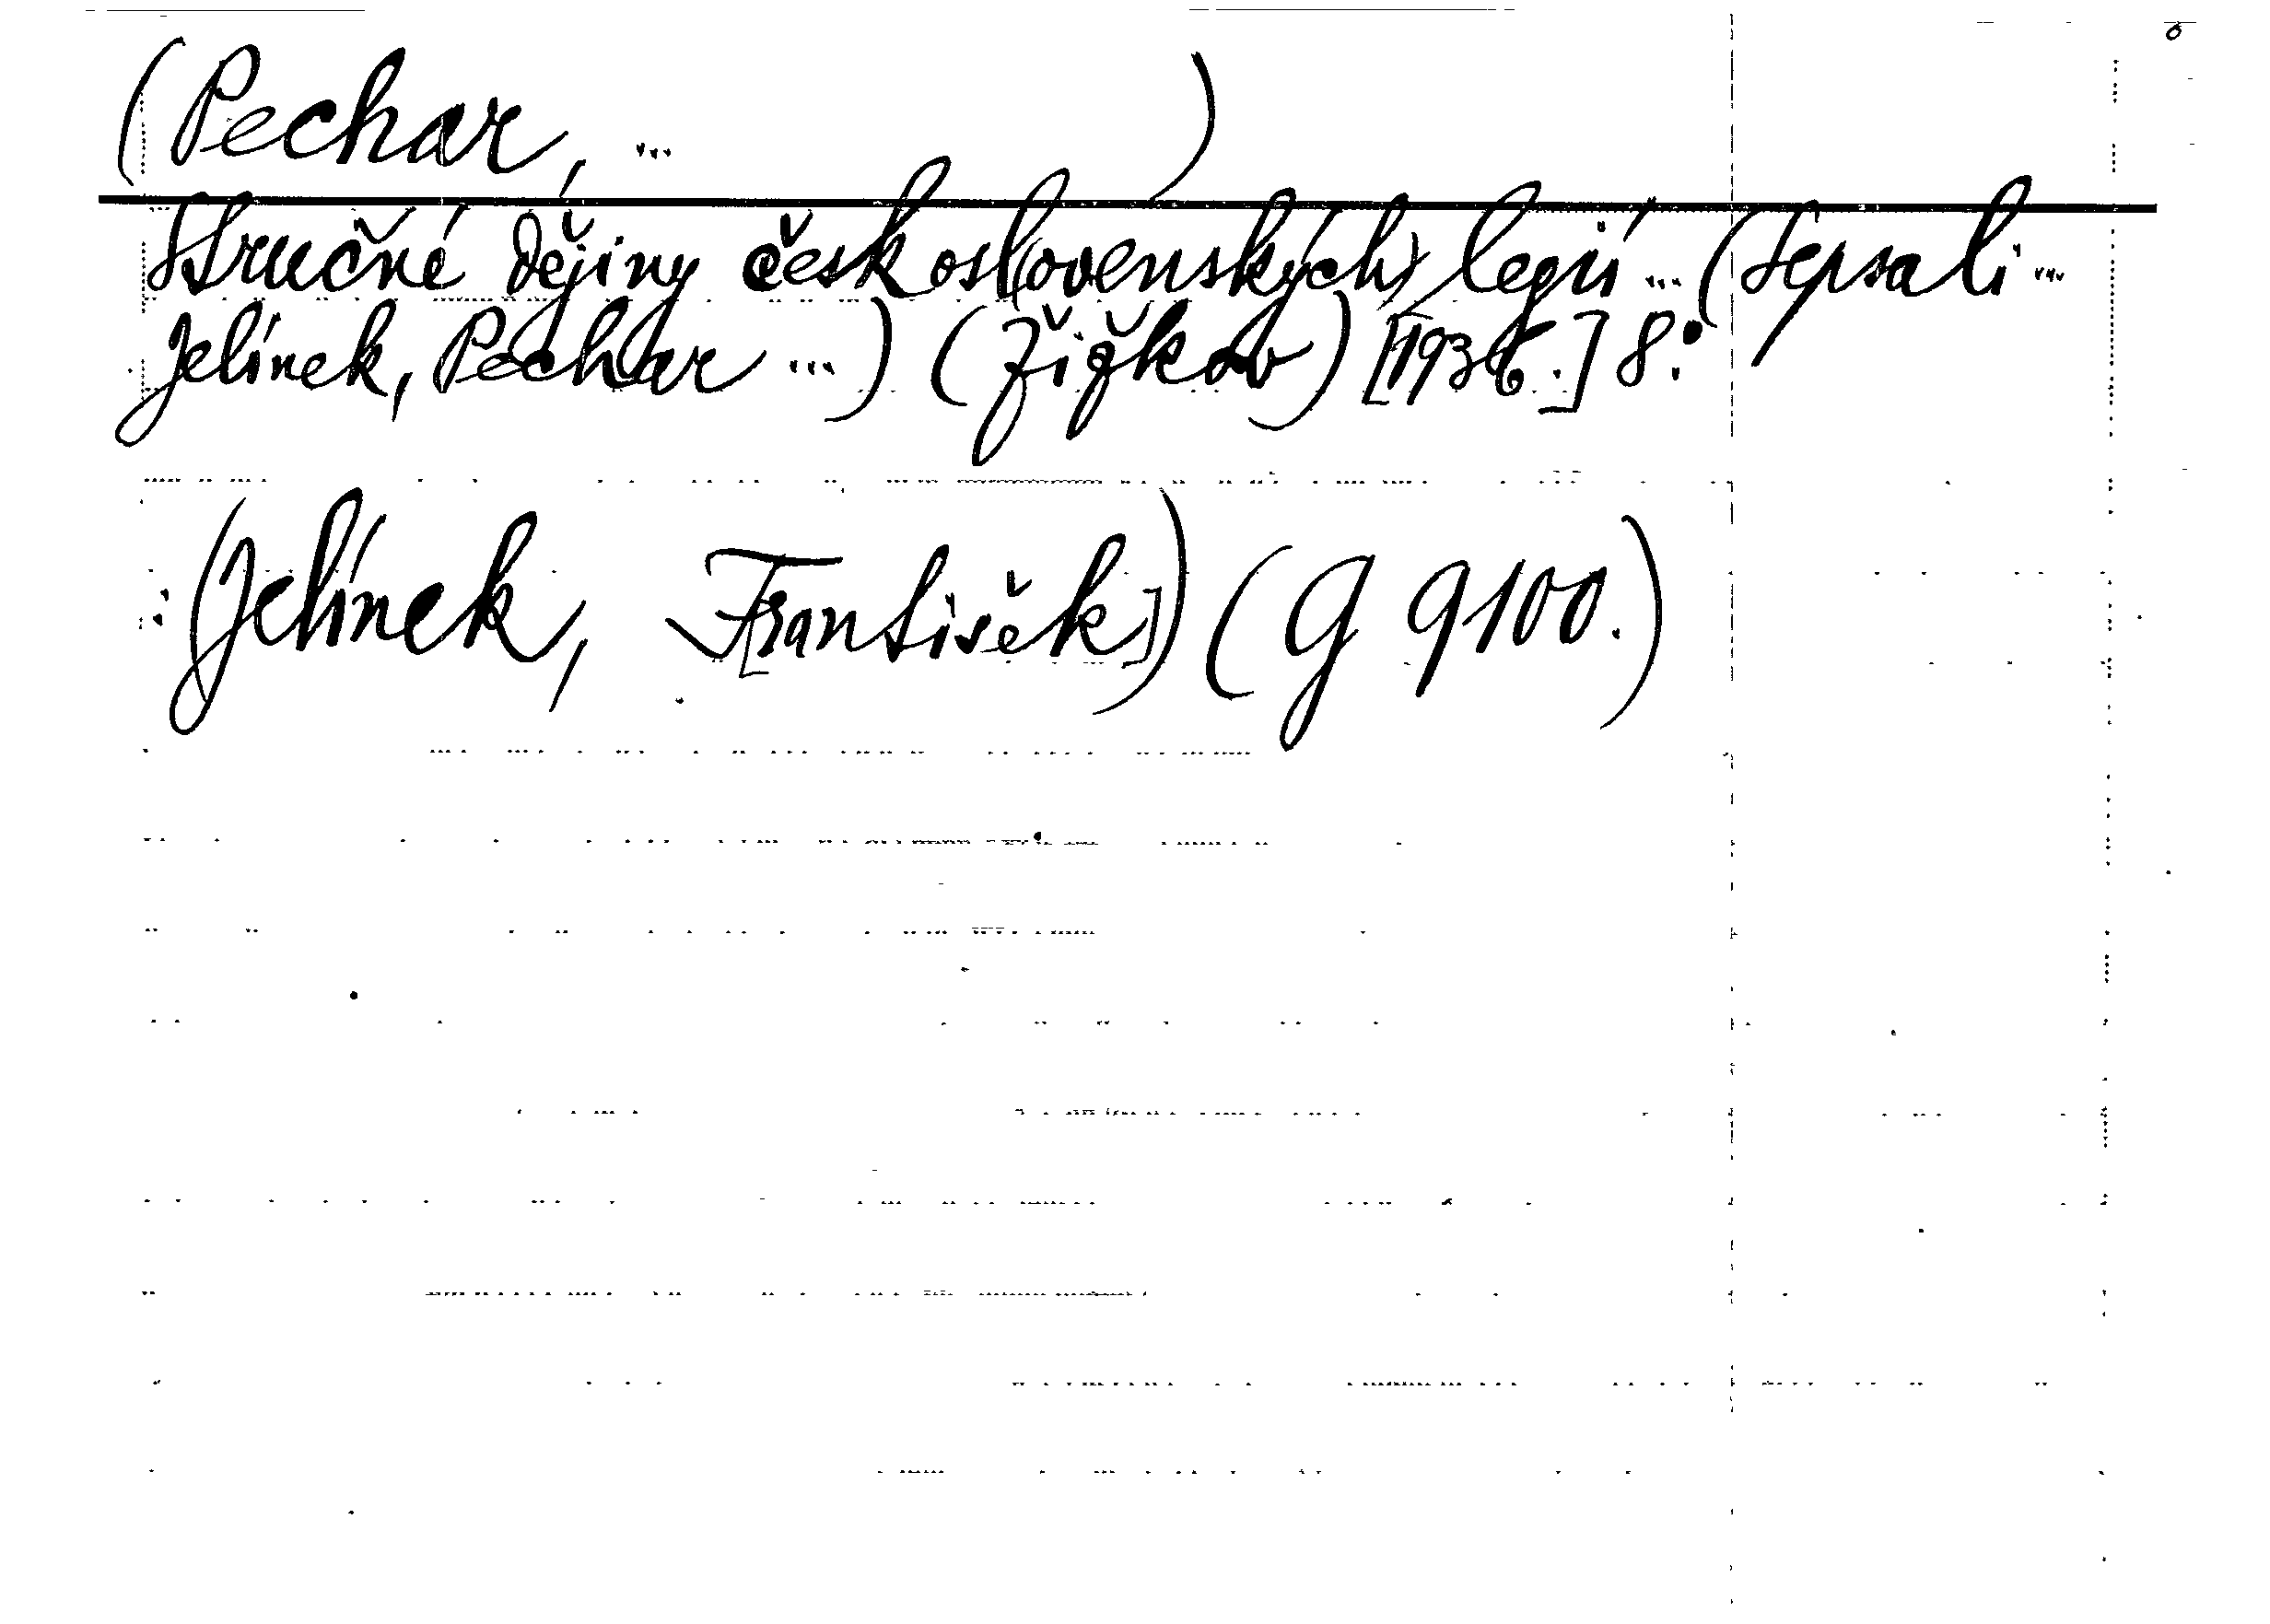 (Pechar, ... )
Stručné dějiny českosl(ovenských) legií ... (Sepsali ...
Jelínek, Pechar ...) (Žižkov) [1936.] 8.°
: (Jelínek, F[rantišek]) (G 9100.)